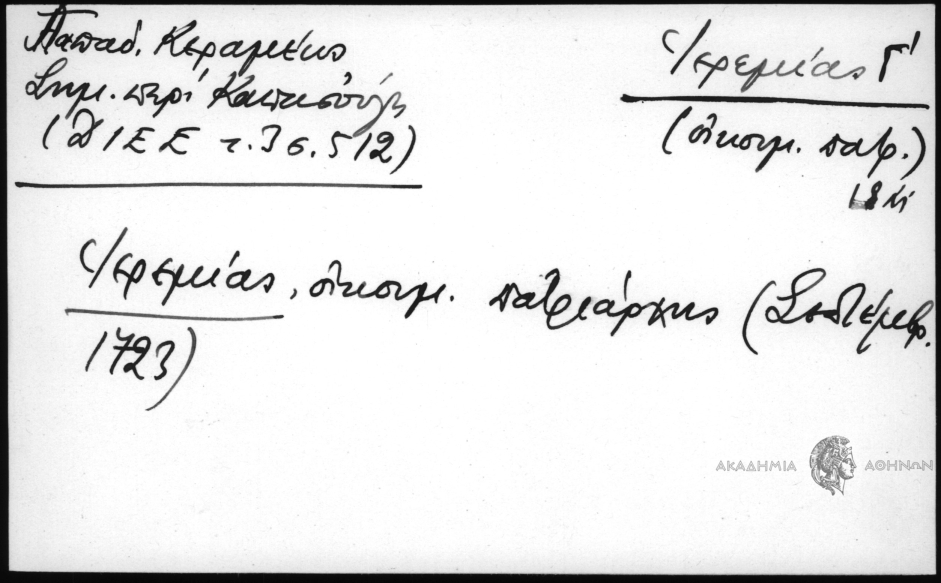 Παπαδ. Κεραμεύς
Σημ. περί
(ΔΙΕΕ τ. 3 σ. 512)
Ἱερεμίας Γ΄
(οἰκουμ. πατρ.)
Ἱερεμίας, οἰκουμ. πατριάρχης (Σεπτέμβρ.
1723)
ΑΚΑΔΗΜΙΑ ΑΘΗΝΩΝ